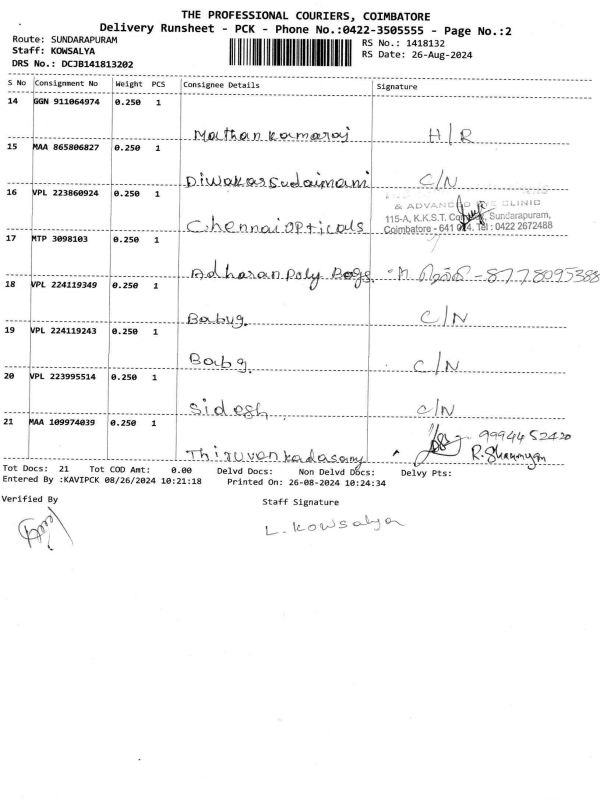 THE PROFESSIONAL COURIERS, COIMBATORE
Delivery Runsheet - PCK - Phone No.:0422-3505555 - Page No.:2
Route: SUNDARAPURAM RS No.: 1418132
Staff: KOWSALYA RS Date: 26-Aug-2024
DRS No.: DCJB141813202
S No Consignment No Weight PCS Consignee Details Signature
14 GGN 911064974 0.250 1
Mathan kamaraj H/R
15 MAA 865806827 0.250 1
Diwakarsudaimani C/N
16 VPL 223860924 0.250 1
& ADVANCED EYE CLINIC
Chennai opticals 115-A, K.K.S.T. Sundarapuram,
Coimbatore - 641 024. Tel : 0422 2672488
17 MTP 3098103 0.250 1
Adharan poly Bags - 8778095388
18 VPL 224119349 0.250 1
Babyg. C/N
19 VPL 224119243 0.250 1
Babg. C/N
20 VPL 223995514 0.250 1
Sidesh C/N
21 MAA 109974039 0.250 1
9994452420
Thiruvenkadasamy R.Shanmugam
Tot Docs: 21 Tot COD Amt: 0.00 Delvd Docs: Non Delvd Docs: Delvy Pts:
Entered By :KAVIPCK 08/26/2024 10:21:18 Printed On: 26-08-2024 10:24:34
Verified By Staff Signature
L. Kowsalya